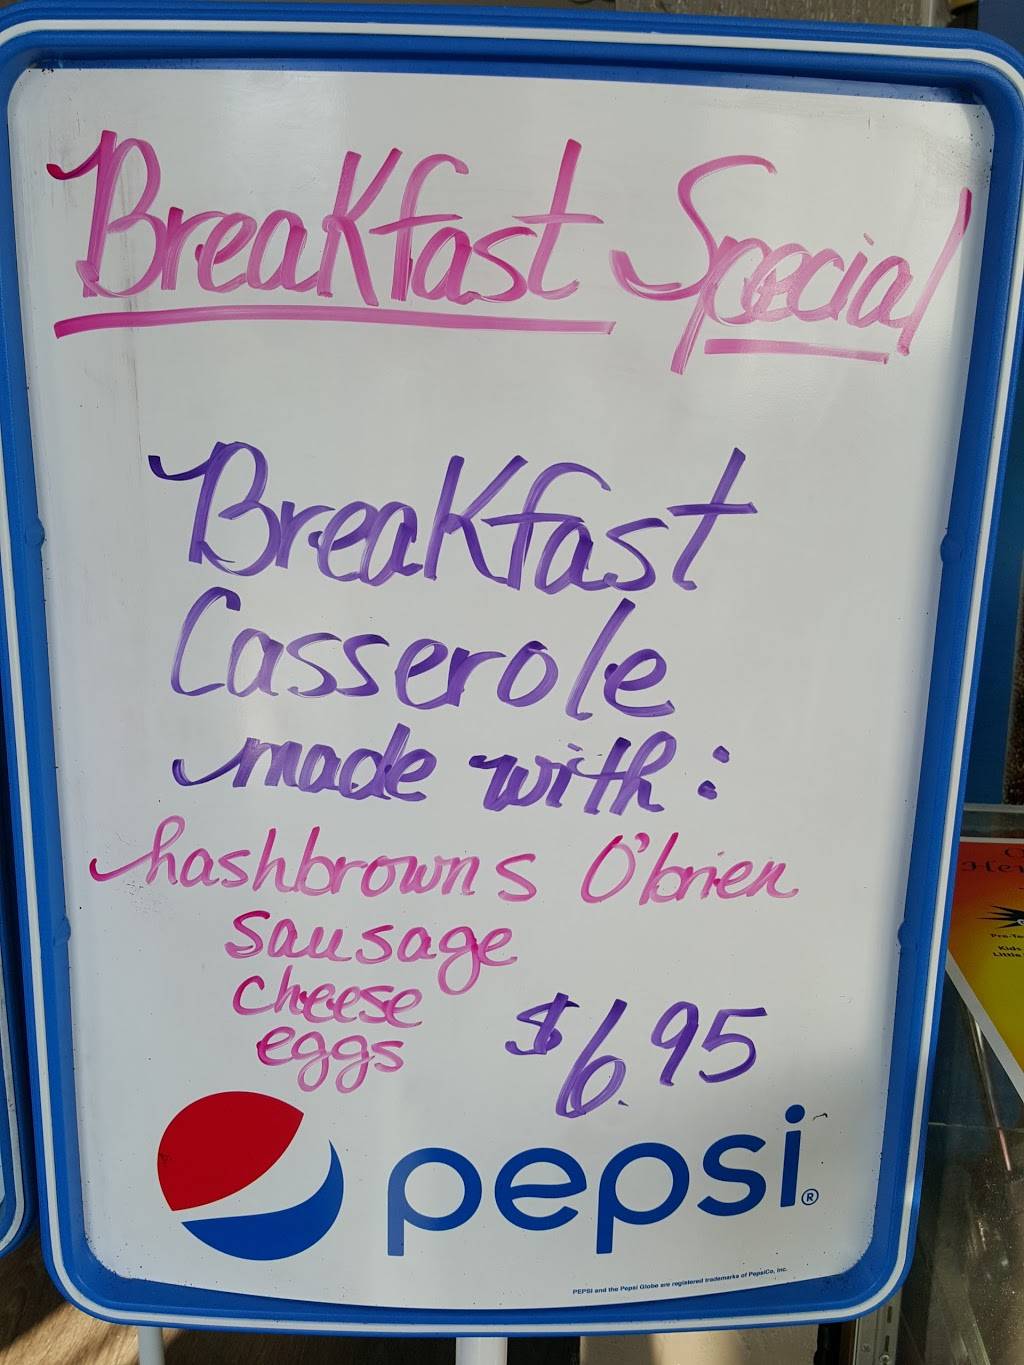 Breakfast Special
Breakfast
Casserole
made with:
hashbrowns O'brien
sausage
cheese
eggs
$6.95
pepsi®
PEPSI and the Pepsi Globe are registered trademarks of PepsiCo, Inc.